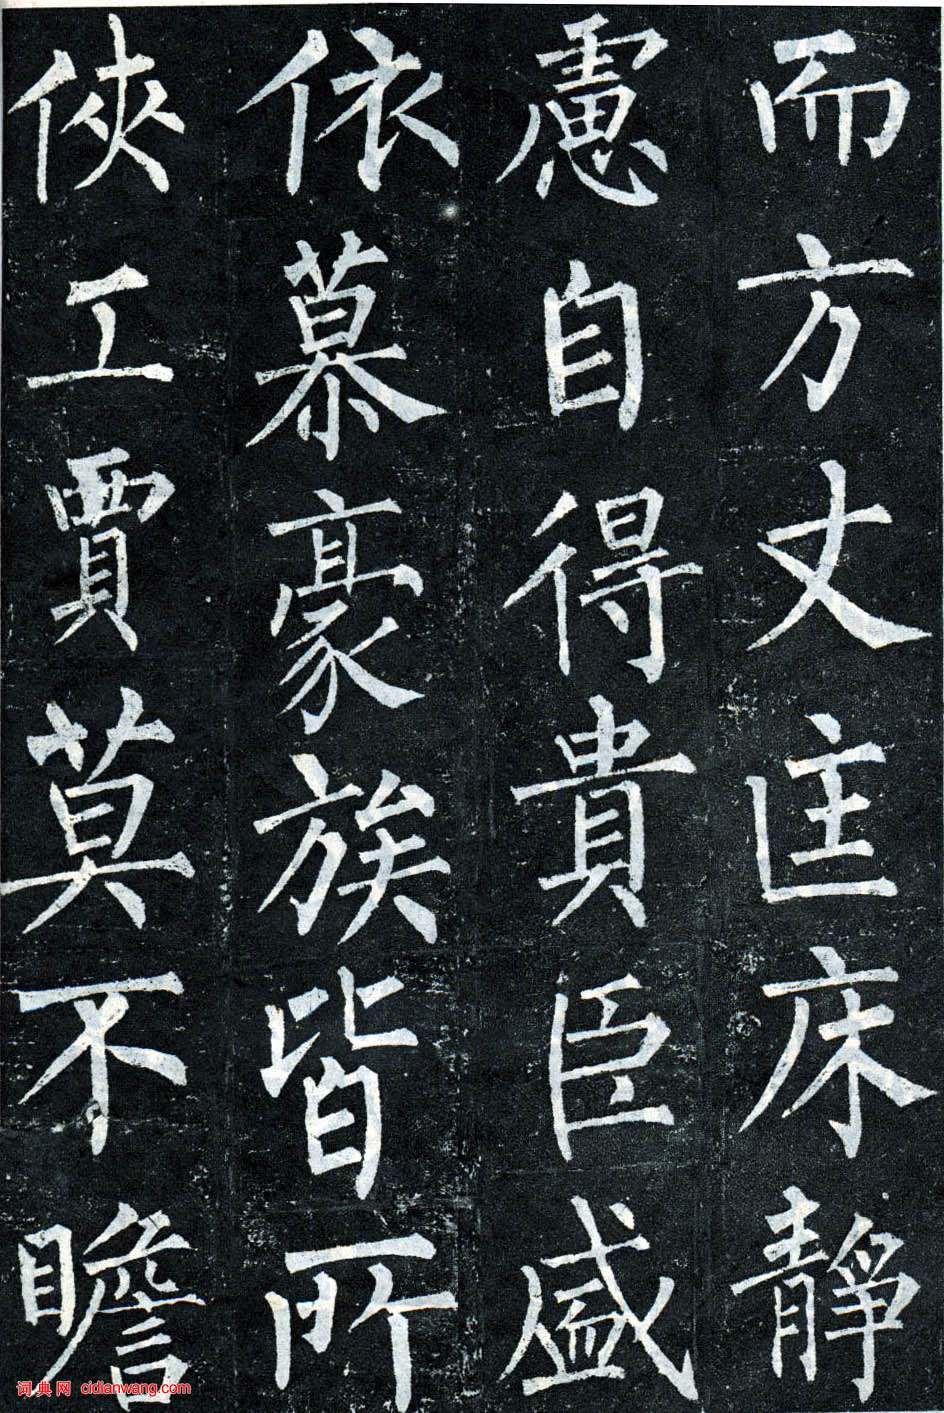 而方丈匡床靜
慮自得貴臣盛
依慕豪族皆所
俠工賈莫不瞻
词典网 cidianwang.com